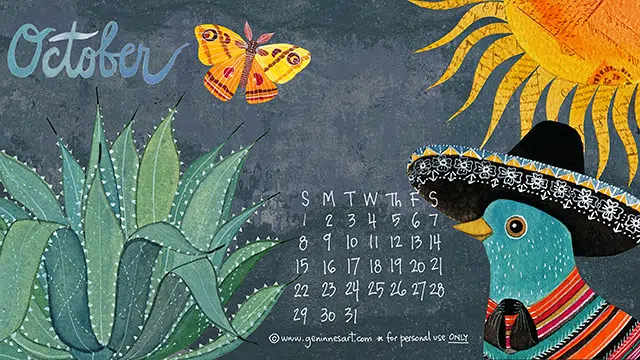 October
S M T W Th F S
1 2 3 4 5 6 7
8 9 10 11 12 13 14
15 16 17 18 19 20 21
22 23 24 25 26 27 28
29 30 31
© www.geninnesart.com * for personal use ONLY